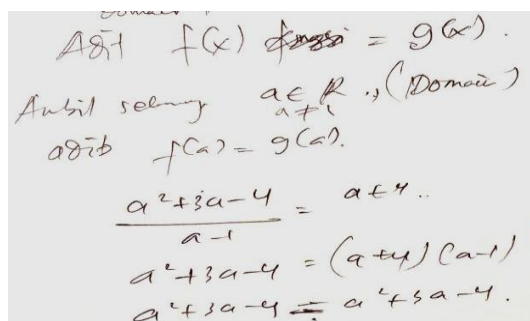 Domain
Adit f(x) = g(x).
Ambil sebarang a ∈ R, (Domain)
a ≠ 1
adib f(a) = g(a).
a²+3a-4 / a-1 = a+4..
a²+3a-4 = (a+4)(a-1)
a²+3a-4 = a²+3a-4.